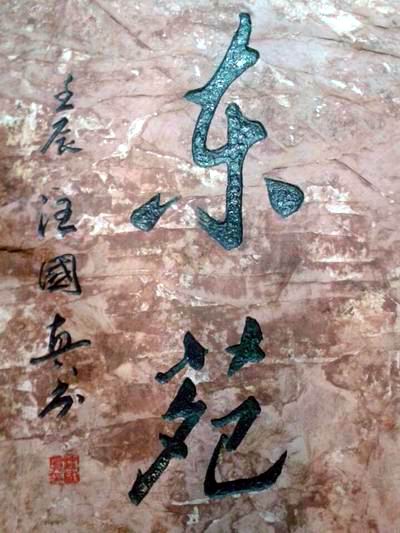 东苑
壬辰汪國真书